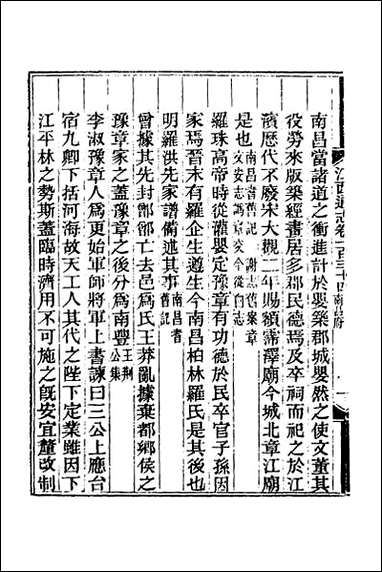 江西通志卷一百三十四 南昌府
南昌當諸道之衝進計於嬰築郡城嬰然之使文董其
役勞來版築經畫居多郡民德焉及卒祠而祀之於江
濱歷代不廢宋大觀二年賜額霈澤廟今城北章江廟
是也南昌耆舊記謝志舊案章文安志馮京今從白志
羅珠高帝時從灌嬰定豫章有功德於民卒官子孫因
家焉晉末有羅企生遵生今南昌柏林羅氏是其後也
明羅洪先家譜備述其事南昌耆舊記
曾據其先封鄫鄫亡去邑爲氏王莽亂據棄都鄉侯之
豫章家之蓋豫章之後分爲南豐王荆公集
李淑豫章人爲更始軍師將軍上書諫曰三公上應台
宿九卿下括河海故天工人其代之陛下定業雖因下
江平林之勢斯蓋臨時濟用不可施之旣安宜釐改制